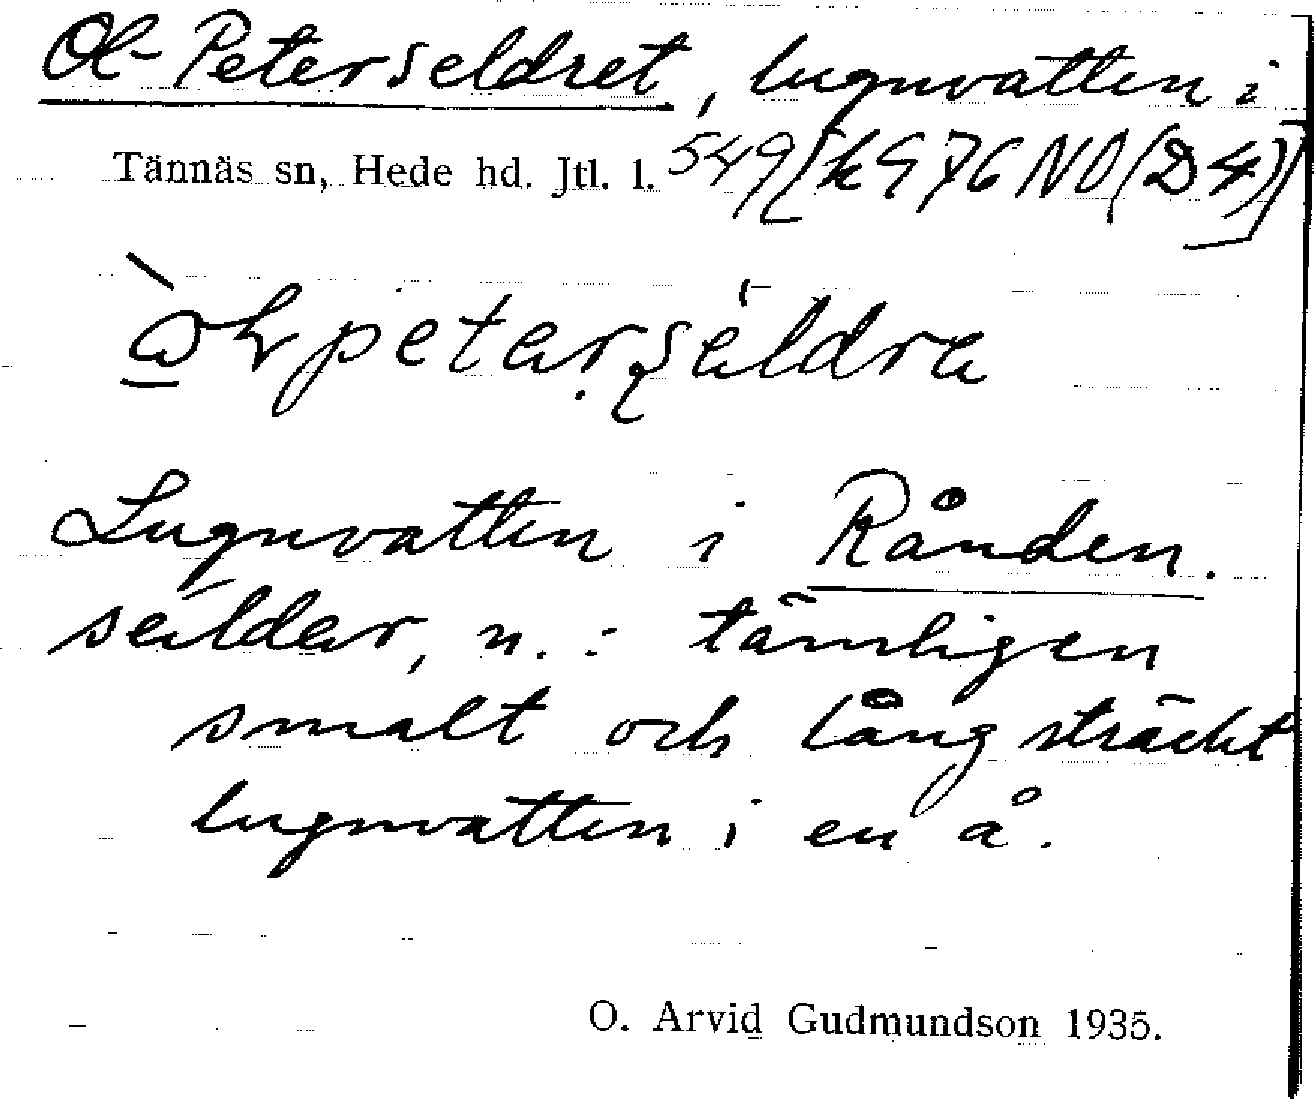 Ol-Peterseldret, lugnvatten i
Tännäs sn, Hede hd. Jtl. l. 549 [k 976 NO (D4)]
Lugnvatten i Rånden.
seldar, n.: tämligen
smalt och långsträckt
lugnvatten i en å.
O. Arvid Gudmundson 1935.